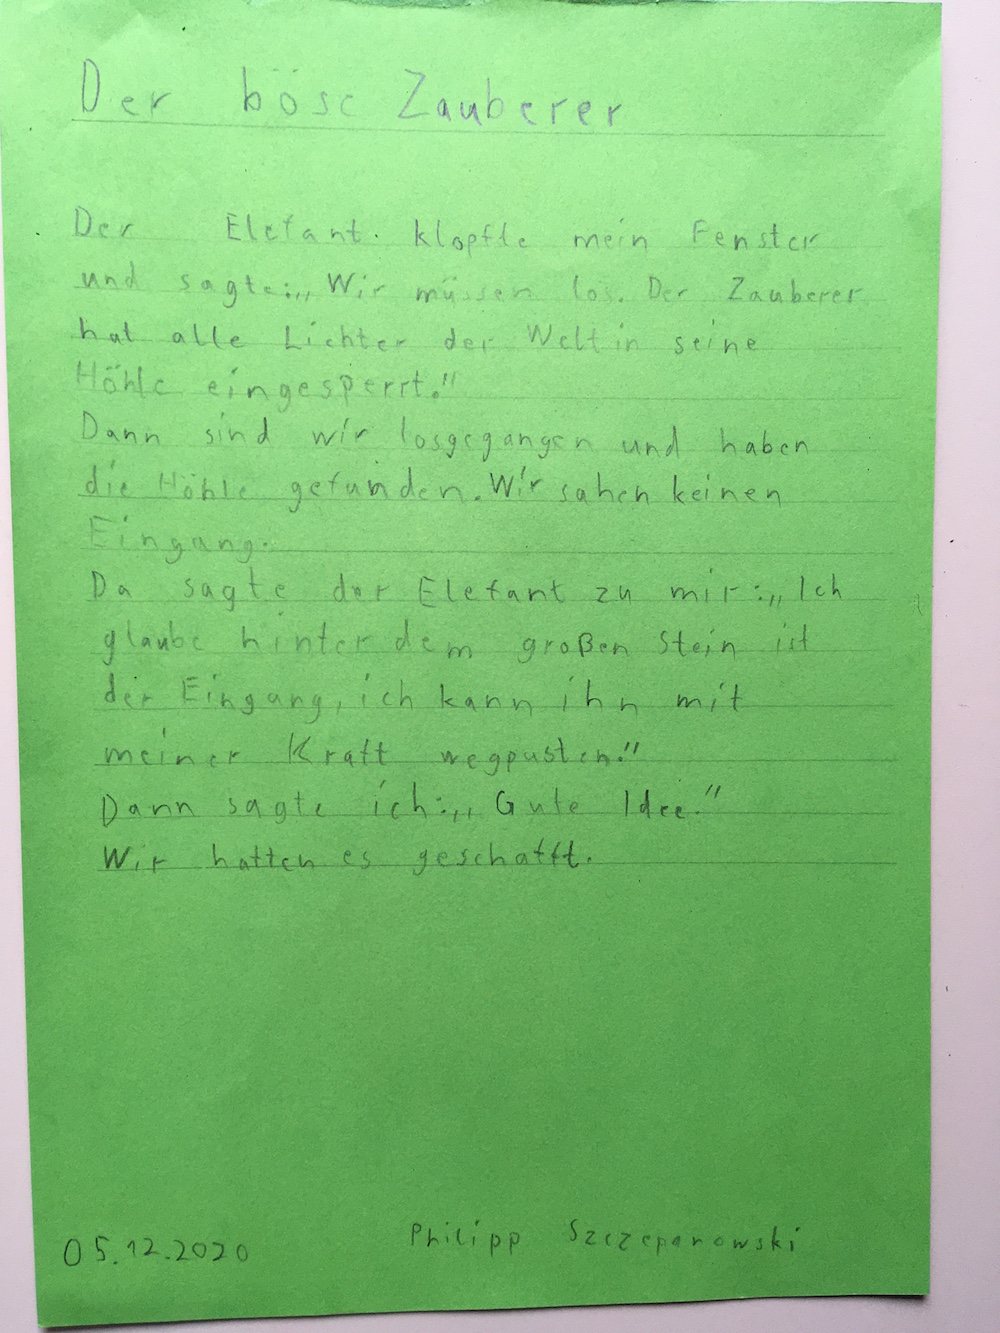 Der böse Zauberer
Der Elefant. klopfte mein Fenster
und sagte:„Wir müssen los. Der Zauberer
hat alle Lichter der Welt in seine
Höhle eingesperrt."
Dann sind wir losgegangen und haben
die Höhle gefunden. Wir sahen keinen
Eingang.
Da sagte der Elefant zu mir:„Ich
glaube hinter dem großen Stein ist
der Eingang, ich kann ihn mit
meiner Kraft wegpusten."
Dann sagte ich:„Gute Idee."
Wir hatten es geschafft.
05.12.2020 Philipp Szczepanowski